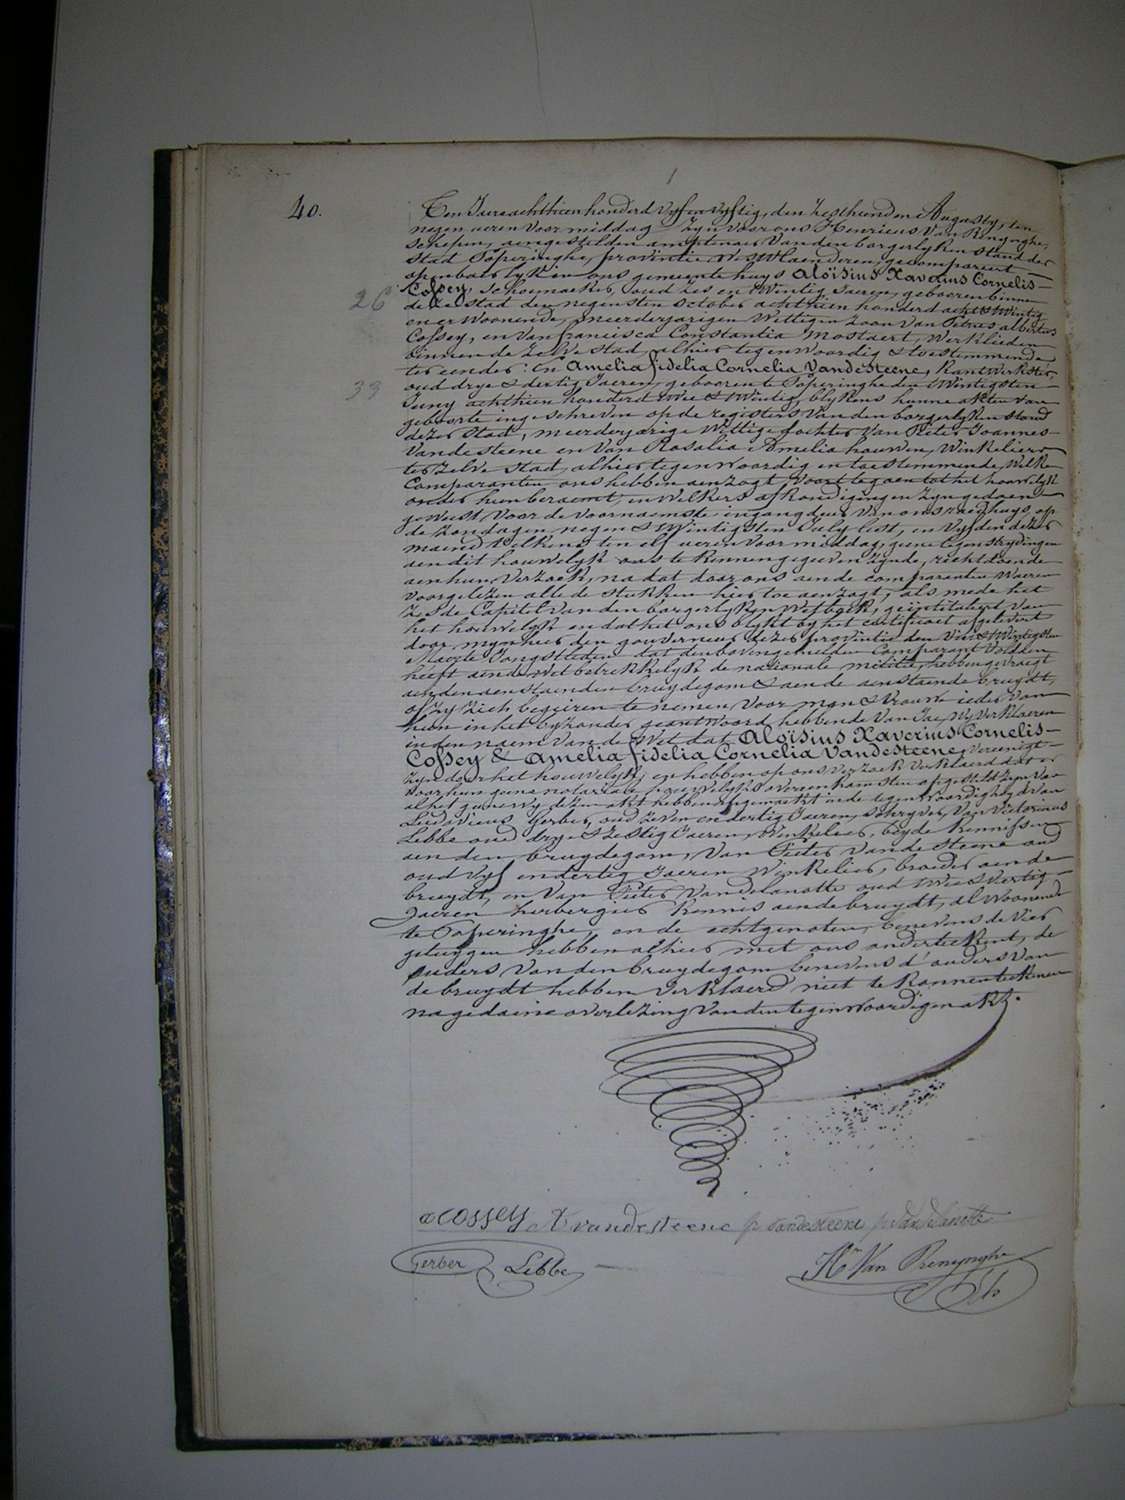 40.
Ten Jaere achthien honderd vyf en vyftig, den zesthienden Augusty, ten
negen ueren voormiddag zyn voor ons Henricus Van Renynghe,
schepen, aengestelden amptenaer van den borgerlyken stand der
stad Poperinghe, provintie Westvlaenderen, gecompareert
openbaerlyk in ons gemeente huys Aloïsius Xaverius Cornelis
26
Cossey, schoemaeker, oud zes en twintig Jaeren, gebooren binnen
deze stad den negensten october achthien honderd acht & twintig
en er woonende, meerderjarigen wettigen zoon van Petrus albertus
Cossey, en van francisca Constantia Mostaert, werklieden
binnen de zelve stad, alhier tegenwoordig & toestemmende
ter eender: En Amelia fidelia Cornelia Vandesteene, kantwerkster
33
oud drye & dertig Jaeren, gebooren te Poperinghe den twintigsten
Juny achthien honderd twee & twintig, blykens hunne akten van
geboorte ingeschreven op de registers van den borgerlyken stand
dezer stad, meerderjarige wettige dochter van Pieter Joannes
Vandesteene en van Rosalia Amelia houwen, Winkeliers
ter zelve stad, alhier tegenwoordig en toestemmende, welke
Comparanten ons hebben aenzogt voort te gaen tot het houwelyk
onder hun beraemt, en welkers afkondigingen zyn gedaen
geweest voor de voornaemste ingangdeur van ons raedhuys, op
de Zondagen, negen & twintigsten July lest, en vyfden dezer
maend telkens ten elf ueren voormiddag, geene tegenstrydingen
aen dit houwelyk ons te kennen gegeven zynde, rechtdoende
aen hun verzoek, na dat door ons aen de comparanten waeren
voorgelezen alle de stukken hier toe aenzogt, als mede het
Zesde Capitel van den borgerlyken Wetboek, geintituleert van
het houwelyk en dat het ons blykt by het certificaet afgelevert
door mynheer den gouverneur dezer provintie den vier & twintigsten
Maerte Jongstleden dat den bovengemelden Comparant voldaen
heeft aen de wet betrekkelyk de nationale militie, hebben gevraegt
aen den aenstaenden bruydegom & aen de aenstaende bruydt,
of zy zich begeiren te nemen voor man & vrouw ieder van
hun in het byzonder geantwoord hebbende van Jae, Wy verklaeren
in den naem van de Wet dat Aloïsius Xaverius Cornelis
Cossey & Amelia fidelia Cornelia Vandesteene, vereenigt
zyn door het houwelyk, en hebben op ons verzoek verklaerd dat er
door hun geene notariale houwelyks overeenkomsten opgesteld zyn van
al het gene wy dezen akt hebben opgemaekt in de tegenwoordigheyd van
Ludovicus Gerber, oud zeven en dertig Jaeren, schryver, van Victorinus
Lebbe oud drye & zestig Jaeren, Winkelier, beyde kennissen
aen den bruydegom, Van Pieter Vandesteene oud
oud vyf en dertig Jaeren Winkelier, broeder aen de
bruydt, en van Pieter Vandelanotte oud twee & vertig
Jaeren herbergier kennis aen de bruydt, al woonende
te Poperinghe, en de echtgenoten, benevens de vier
getuygen hebben alhier met ons onderteekent, de
ouders van den bruydegom benevens d'ouders van
de bruydt hebben verklaerd niet te konnen teekenen
na gedaene overlezing van den tegenwoordigen akt.
a cossey A vandesteene p vandesteene p vandelanotte
Gerber Lebbe Hri Van Renynghe